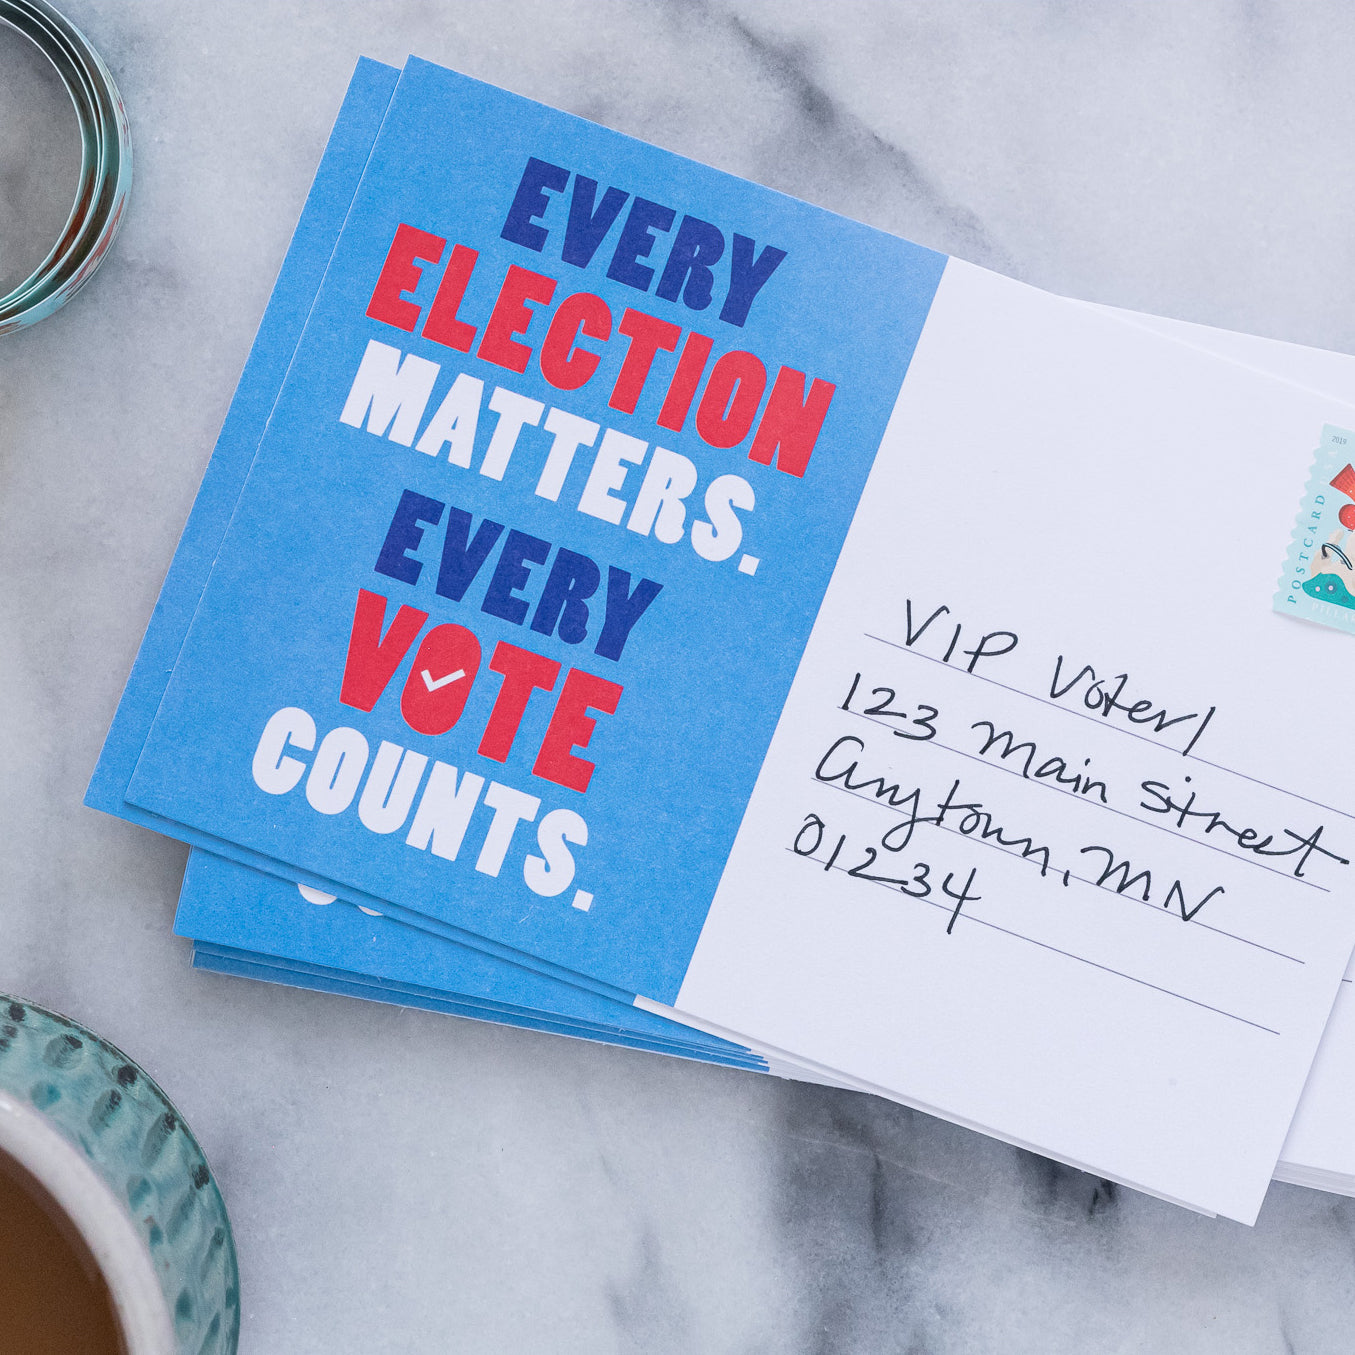 EVERY
ELECTION
MATTERS.
EVERY
VOTE
COUNTS.
VIP Voter!
123 Main Street
Anytown, MN
01234
2019
POSTCARD